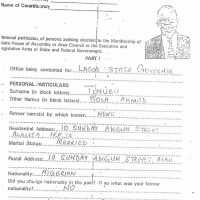 Name of Constituency
Personal particulars, of persons seeking election to the Membership of
State House of Assembly or Area Council or the Executive and
Legislative Arms of State and Federal Government.
PART I
Office being contested for LAGOS STATE GOVERNOR
PERSONAL PARTICULARS
Surname (in block letters) TINUBU
Other Names (in block letters) BOLA AHMED
Former name(s) by which known NONE
Residential Address: 10 SUNDAY ADIGUN STREET
ALAUSA IKEJA
Marital Status: MARRIED
Postal Address: 10 SUNDAY ADIGUN STREET,
Nationality NIGERIAN
Did you change nationality in the past? If yes what was your former
nationality? NO